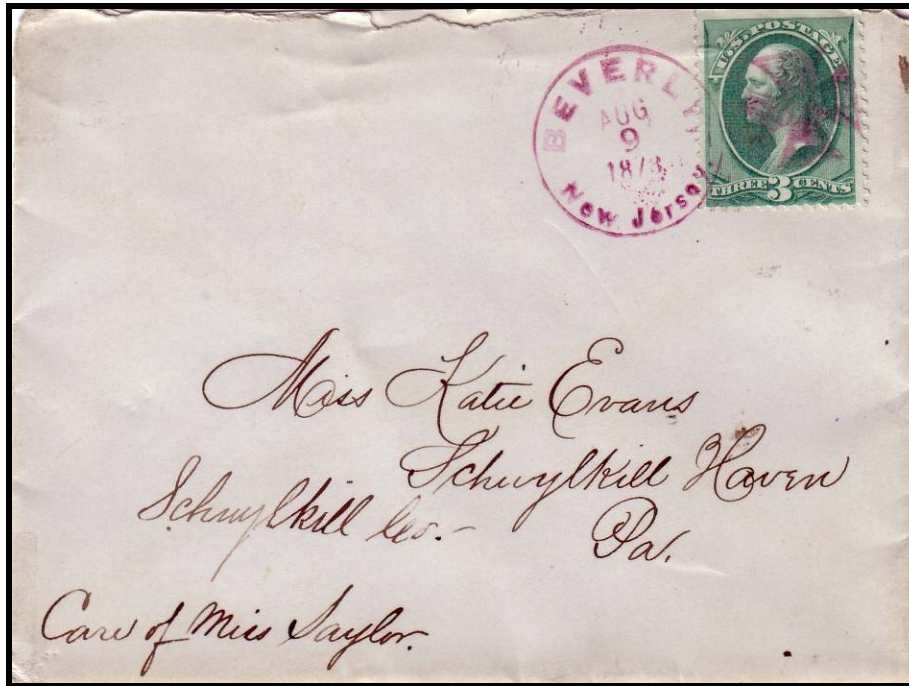 BEVERLY
AUG
9
1878
New Jersey.
U.S. POSTAGE
THREE 3 CENTS
Miss Katie Evans
Schuylkill Haven
Schuylkill Co.-
Pa.
Care of Miss Saylor.